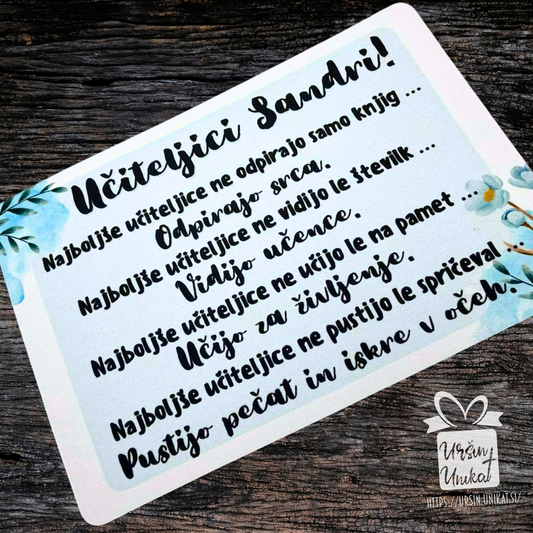 Učiteljici Sandri!
Najboljše učiteljice ne odpirajo samo knjig ...
Odpirajo srca.
Najboljše učiteljice ne vidijo le številk ...
Vidijo učence.
Najboljše učiteljice ne učijo le na pamet ...
Učijo za življenje.
Najboljše učiteljice ne pustijo le spričeval ...
Pustijo pečat in iskre v očeh.
Uršin
Unikat
https://ursin.unikat.si/